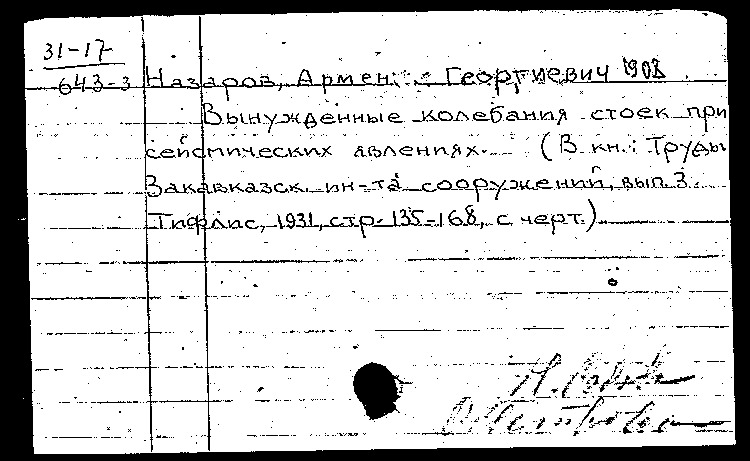 31-17
643-3 Назаров, Армен Георгиевич 1908
Вынужденные колебания стоек при
сейсмических явлениях. (В кн.: Труды
Закавказск. ин-та сооружений, вып. 3.
Тифлис, 1931, стр. 135-168, с черт.)